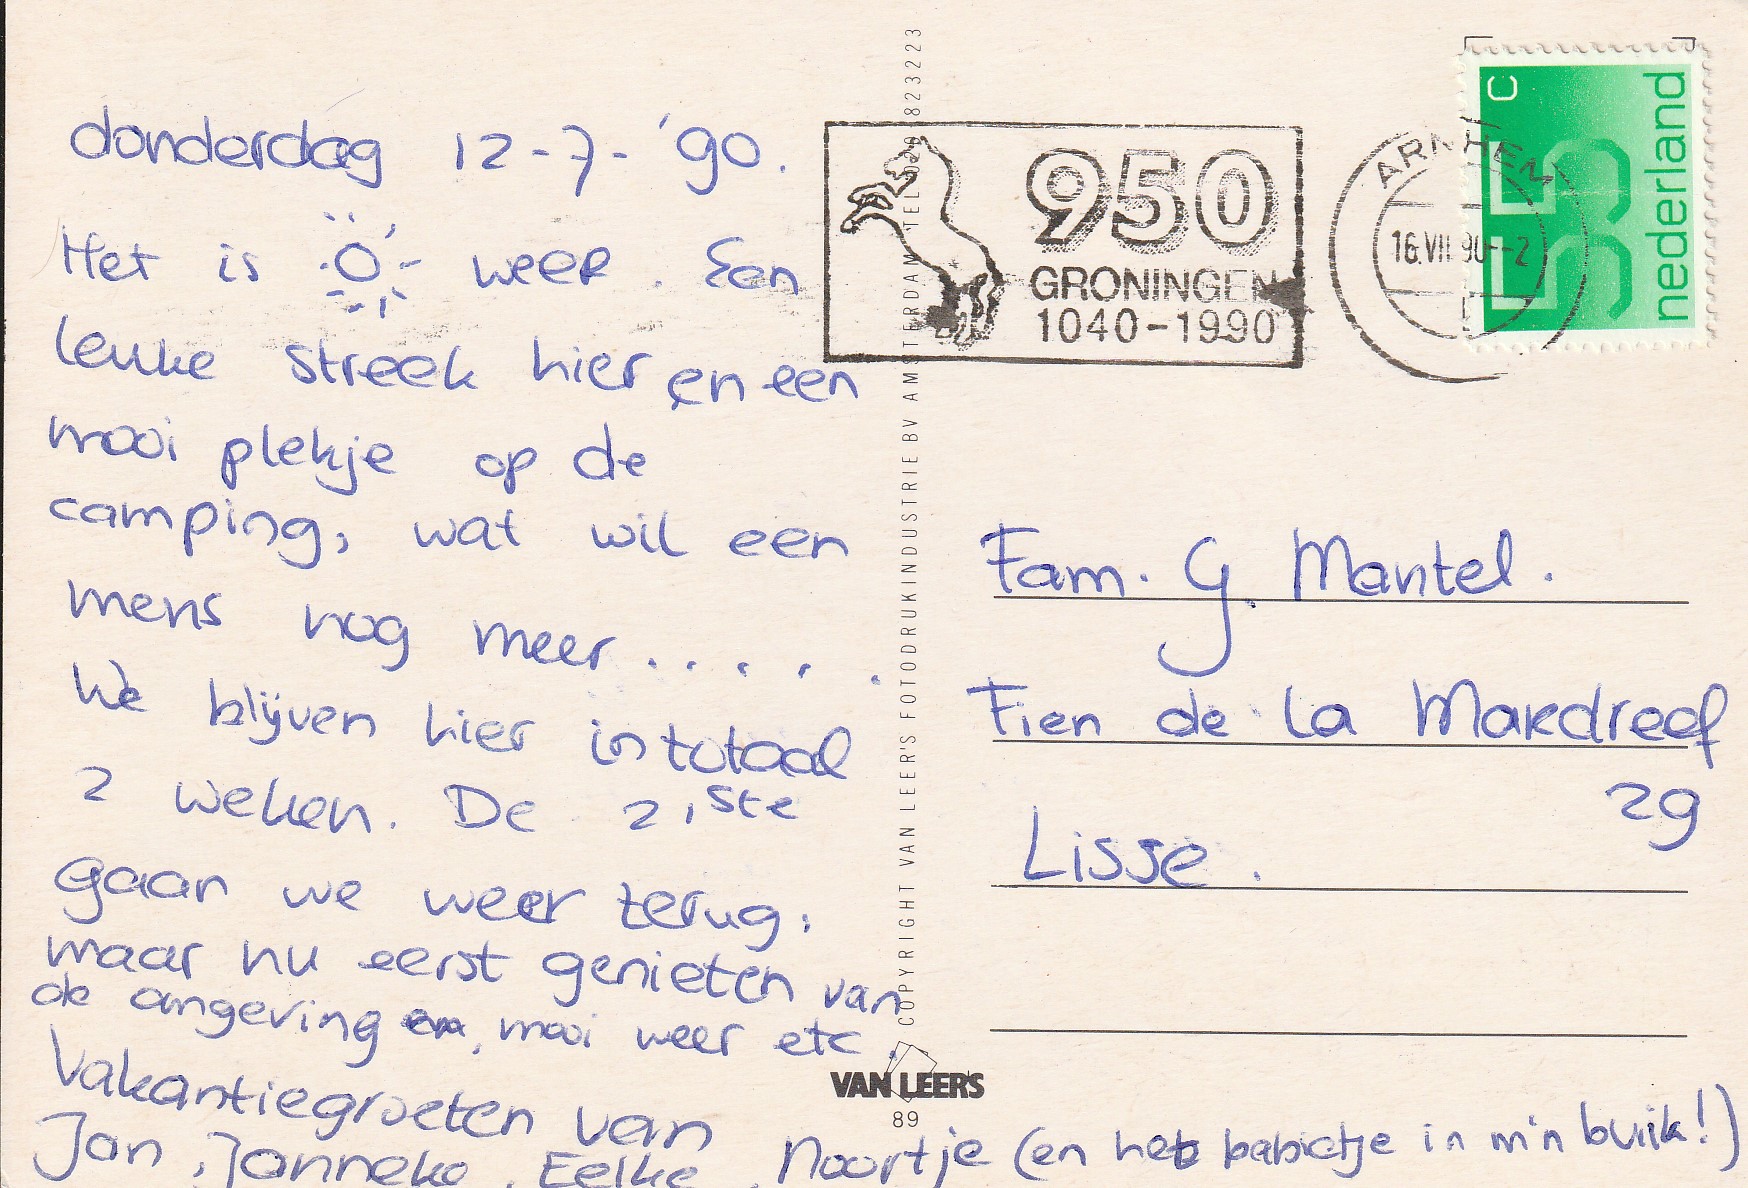 donderdag 12-7-'90.
Het is weer. Een
leuke streek hier en een
mooi plekje op de
camping, wat wil een
mens nog meer.....
We blijven hier in totaal
2 weken. De 21ste
gaan we weer terug,
maar nu eerst genieten van
de omgeving, mooi weer etc.
Vakantiegroeten van
Jan, Janneke, Eelke, Noortje (en het babietje in m'n buik!)
COPYRIGHT VAN LEER'S FOTODRUKINDUSTRIE BV AMSTERDAM TEL 020 823223
VAN LEER'S
89
950
GRONINGEN
1040-1990
ARNHEM
16.VII.90--2
55 C
nederland
Fam. G. Mantel.
Fien de la Mardreef
29
Lisse.